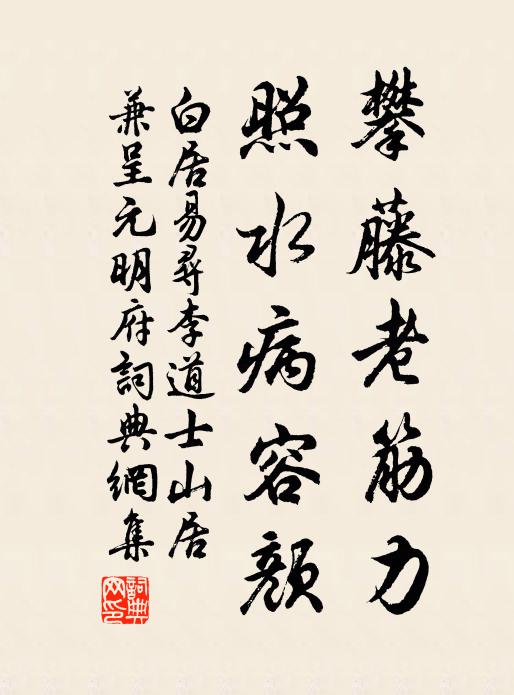 攀藤老筋力
照水病容顔
白居易尋李道士山居
兼呈元明府詞典網集
詞典网印